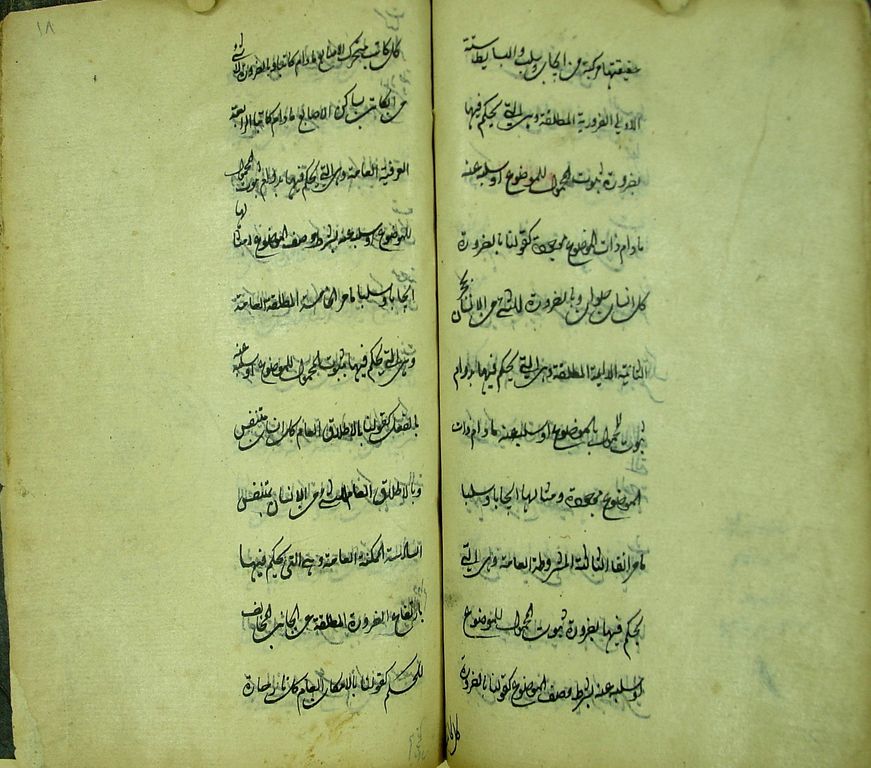 حقيقتها مركبة من ايجاب وسلب والبسايط ستة
الاولى الضرورية المطلقة وهى التى يحكم فيها
بضرورة ثبوت المحمول للموضوع او سلبه عنه
مادام ذات الموضوع موجودة كقولنا بالضرورة
كل انسان حيوان وبالضرورة لا شئ من الانسان بحجر
الثانية الدايمة المطلقة وهى التى يحكم فيها بدوام
ثبوت المحمول للموضوع او سلبه عنه مادام ذات
الموضوع موجودة ومثالها ايجابا وسلبا
ما مر انفا الثالثة المشروطة العامة وهى التى
يحكم فيها بضرورة ثبوت المحمول للموضوع
او سلبه عنه بشرط وصف الموضوع كقولنا بالضرورة
كل كاتب
١٨
كل كاتب متحرك الاصابع مادام كاتبا وبالضرورة لا شئ
من الكاتب بساكن الاصابع مادام كاتبا الرابعة
العرفية العامة وهى التى يحكم فيها بدوام ثبوت المحمول
للموضوع او سلبه عنه بشرط وصف الموضوع ومثالها
ايجابا وسلبا ما مر الخامسة المطلقة العامة
وهى التى يحكم فيها بثبوت المحمول للموضوع او سلبه عنه
بالفعل كقولنا بالاطلاق العام كل انسان متنفس
وبالاطلاق العام لا شئ من الانسان بمتنفس
السادسة الممكنة العامة وهي التى يحكم فيها
بارتفاع الضرورة المطلقة عن الجانب المخالف
للحكم كقولنا بالامكان العام كل نار حارة